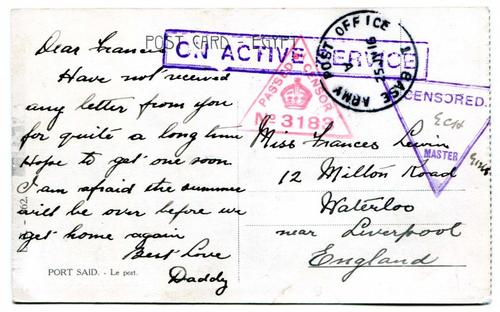 POST CARD - EGYPT
ON ACTIVE SERVICE
ARMY POST OFFICE
1 BASE
A
16
PASSED BY CENSOR
No 3183
CENSORED.
MASTER
Dear Frances
Have not received
any letter from you
for quite a long time
Hope to get one soon
I am afraid the summer
will be over before we
get home again
Best Love
Daddy
Miss Frances Lewin
12 Milton Road
Waterloo
near Liverpool
England
PORT SAID. - Le port.